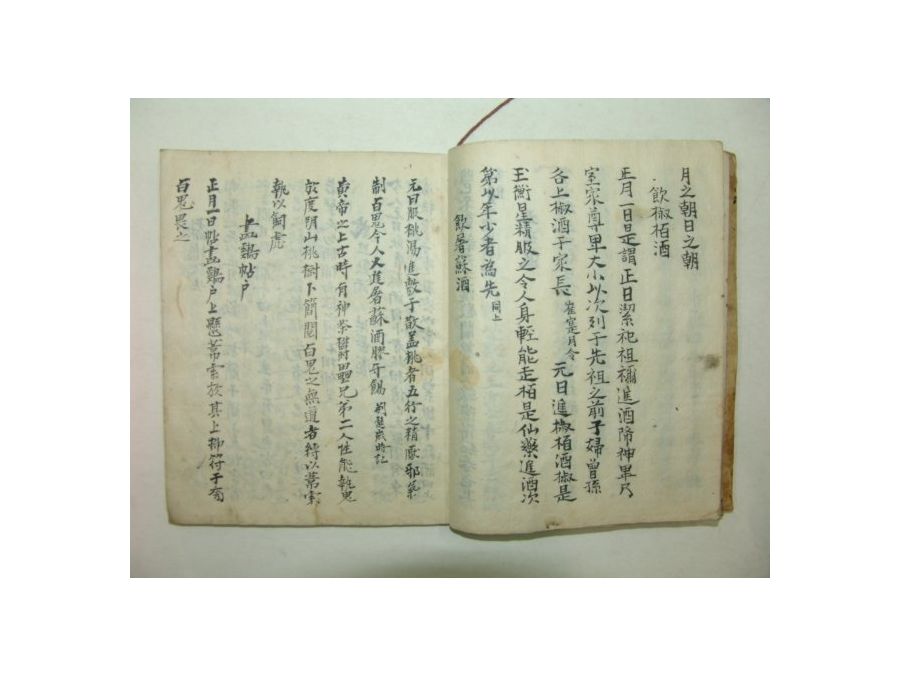 月之朝日之朝
飮椒栢酒
正月一日是謂正日潔祀祖禰進酒降神畢乃
室家尊卑大小以次列于先祖之前子婦曾孫
各上椒酒于家長 崔寔月令 元日進椒栢酒椒是
玉衡星精服之令人身輕能走栢是仙藥進酒次
第以年少者爲先 同上
飮屠蘇酒
元日服桃湯進敷于散盖桃者五行之精厭邪氣
制百鬼令人又進屠蘇酒膠牙餳 荆楚歲時記
黃帝之上古時有神荼欝壘兄弟二人性能執鬼
於度朔山桃樹下簡閱百鬼之無道者縛以葦索
執以飼虎
畫鷄帖戶
正月一日帖畫鷄戶上懸葦索於其上揷符于旁
百鬼畏之